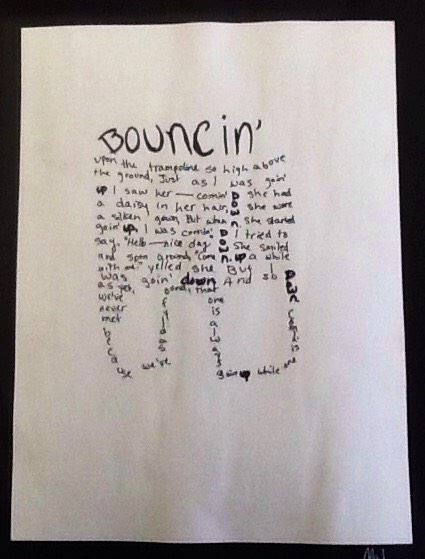 BOUNCIN'
upon the trampoline so high above
the ground, Just as I was goin'
up I saw her — comin' Down she had
a daisy in her hair, she wore
a silken gown, But when she started
goin' up, I was comin' Down. I tried to
say, "Hello — nice day" She smiled
and spon ground, "Come up a while
with me" yelled she But I
was goin' down And so
as yet,
we've
never
met
because we've
that
one
is
always
goin up while one
is comin'
Down